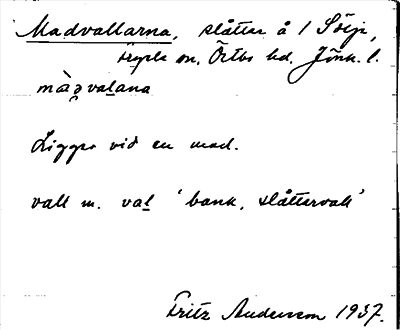 Madvallarna, slåtter å 1 Sötja,
Fryele sn, Östbo hd. Jönk. l.
màḍvaḻana
Ligger vid en mad.
vall m. vaḻ 'bank, slåttervall'
Fritz Andersson 1937.